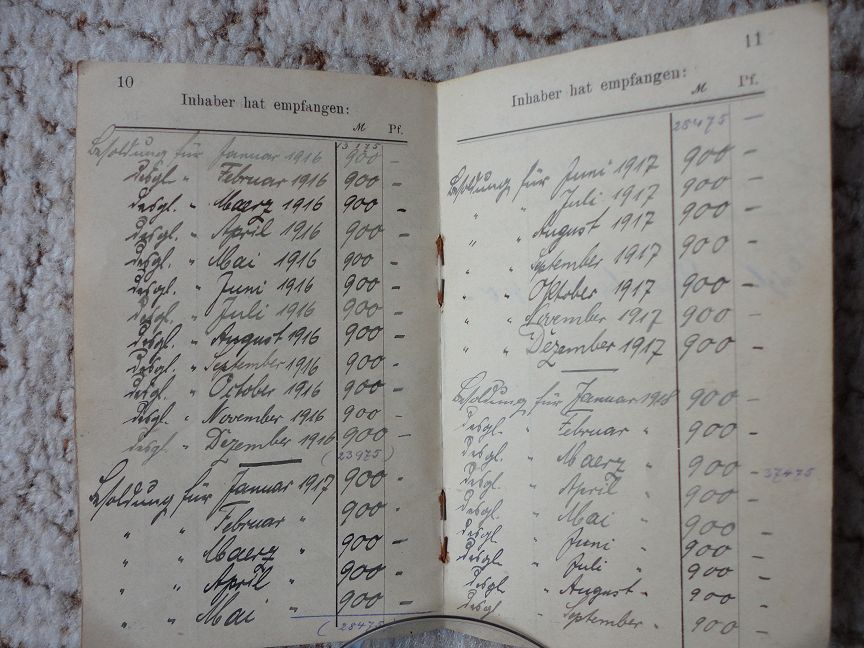 10
Inhaber hat empfangen:
M Pf.
13175
Besoldung für Januar 1916 900 –
desgl. " Februar 1916 900 –
desgl. " Maerz 1916 900 –
desgl. " April 1916 900 –
desgl. " Mai 1916 900 –
desgl. " Juni 1916 900 –
desgl. " Juli 1916 900 –
desgl. " August 1916 900 –
desgl. " September 1916 900 –
desgl. " October 1916 900 –
desgl. " November 1916 900 –
desgl. " Dezember 1916 900 –
(23975)
Besoldung für Januar 1917 900 –
" " Februar " 900 –
" " Maerz " 900 –
" " April " 900 –
" " Mai " 900 –
(28475)
11
Inhaber hat empfangen:
M Pf.
28475 –
Besoldung für Juni 1917 900 –
" " Juli 1917 900 –
" " August 1917 900 –
" " September 1917 900 –
" " Oktober 1917 900 –
" " November 1917 900 –
" " Dezember 1917 900 –
Besoldung für Januar 1918 900 –
desgl. " Februar " 900 –
desgl. " Maerz " 900 – 37475
desgl. " April " 900 –
desgl. " Mai " 900 –
desgl. " Juni " 900 –
desgl. " Juli " 900 –
desgl. " August " 900 –
desgl. " September " 900 –